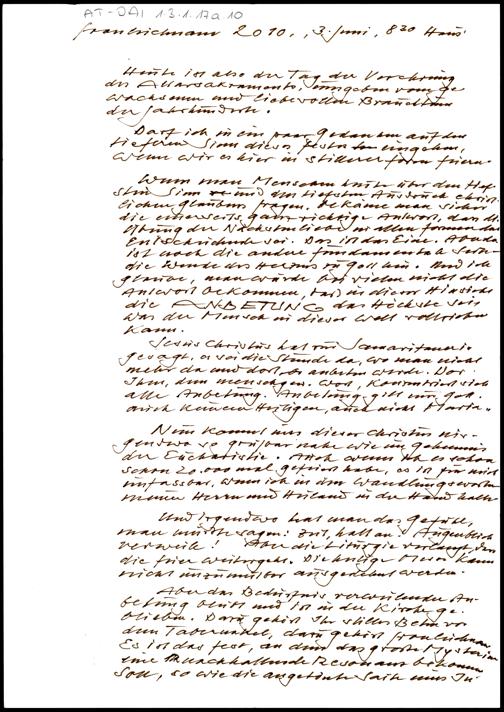 AT-OAI 1.3.1.17a.10
Fronleichnam 2010, 3. Juni, 8 30 Haus
Heute ist also der Tag der Verehrung
des Altarsakraments, umgeben vom ge
wachsenen und liebevollen Brauchtum
der Jahrhunderte.
Darf ich in ein paar Gedanken auf den
tieferen Sinn dieses Festes eingehen,
wenn wir es hier in stillerer Form feiern.
Wenn man Menschen heute über den tief
sten Sinn und den tiefsten Ausdruck christ
lichen Glaubens fragen, bekäme man sicher
die einerseits ganz richtige Antwort, dass die
Übung der Nächstenliebe in allen Formen das
Entscheidende sei. Das ist das Eine. Aber da
ist noch die andere fundamentale Seite:
die Wende des Herzens zu Gott hin. Und ich
glaube, man würde bei vielen nicht die
Antwort bekommen, daß in dieser Hinsicht
die ANBETUNG das Höchste sei
was der Mensch in dieser Welt vollziehen
kann.
Jesus Christus hat zur Samariterin
gesagt, es sei die Stunde da, wo man nicht
mehr da und dort anbeten werde. Vor
Ihm, dem menschgew. Wort, konzentriert sich
alle Anbetung. Anbetung gilt nur Gott
auch keinem Heiligen, auch nicht Maria
Nun kommt uns dieser Christus nir-
gendwo so greifbar nahe wie im Geheimnis
der Eucharistie. Auch wenn ich es schon
schon 20.000 mal gefeiert habe, es ist für mich
unfassbar, wenn ich in den Wandlungsworten
meinen Herrn und Heiland in der Hand halte
Und irgendwo hat man das Gefühl,
man müsste sagen: Zeit, halt an! Augenblick
verweile! Aber die Liturgie verlangt, dass
die Feier weitergeht. Die heilige Messe kann
nicht unzumutbar ausgedehnt werden.
Aber das Bedürfnis verweilender An-
betung bleibt und ist in der Kirche ge
blieben. Dazu gehört Ihr stilles Beten vor
dem Tabernakel, dazu gehört Fronleichnam.
Es ist das Fest, an dem das große Mysterium
eine nachhallende Resonanz bekommen
soll, so wie die angetönte Saite eines In-